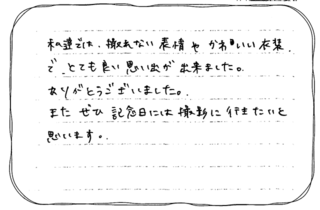 私達では、撮れない表情や かわいい衣装
で、とても良い思い出が出来ました。
ありがとうございました。
また ぜひ 記念日には撮影に行きたいと
思います。